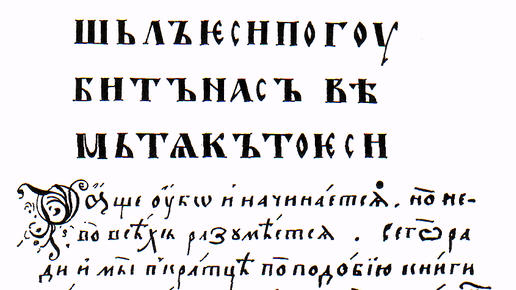 ШЬЛЪѤСИПОГОУ
БИТЪНАСЪ ВѢ
МЬТѦКЪТОѤСИ
А҆́ще оу҆́бѡ и҆ начина́етсѧ, но̀ не-
во всѣ́хъ разꙋмѣ́етсѧ. Сегѡ̀ ра
ди и҆ мы̀ вкра́тцѣ по подо́бїю кни́ги